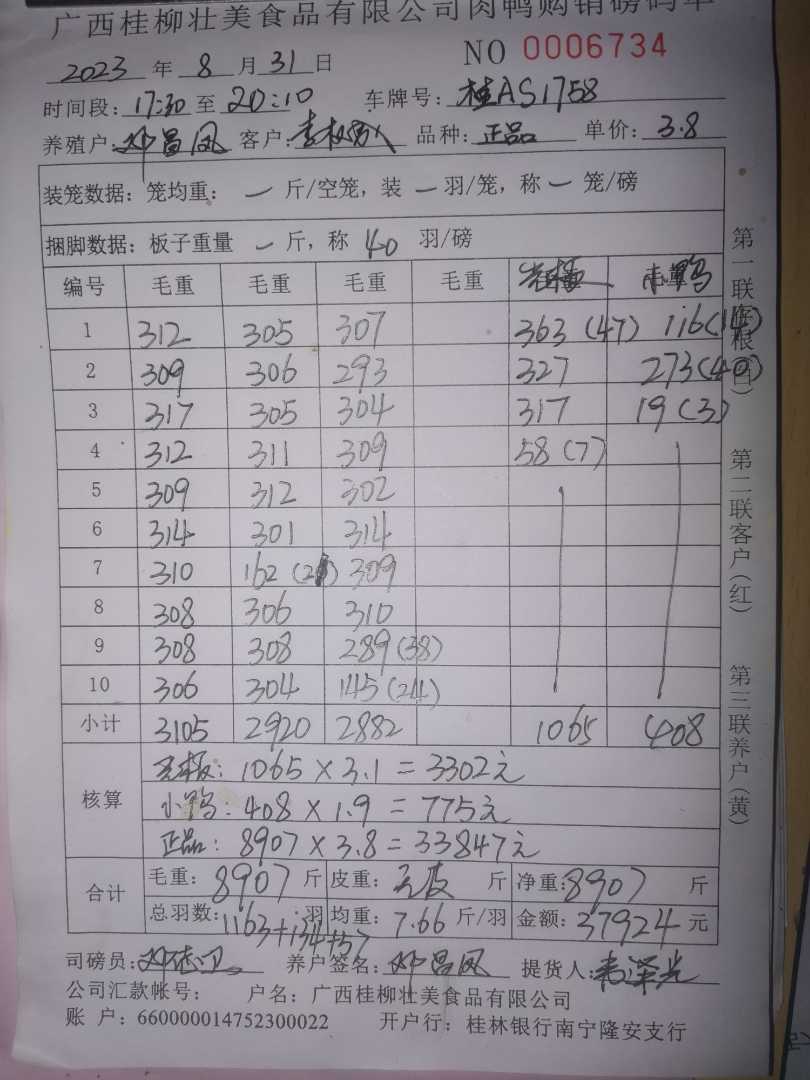 广西桂柳壮美食品有限公司肉鸭购销磅码单
NO 0006734
2023 年 8 月 31 日
时间段: 17:30 至 20:10 车牌号: 桂AS1758
养殖户: 邓昌凤 客户: 品种: 正品 单价: 3.8
装笼数据: 笼均重: 一 斤/空笼, 装 一 羽/笼, 称 一 笼/磅
捆脚数据: 板子重量 一 斤, 称 40 羽/磅
编号 毛重 毛重 毛重 毛重
1 312 305 307 363 (47) 116 (14)
2 309 306 293 327 273 (40)
3 317 305 304 317 19 (3)
4 312 311 309 58 (7)
5 309 312 302
6 314 301 314
7 310 162 309
8 308 306 310
9 308 308 289 (38)
10 306 304 145 (24)
小计 3105 2920 2882 1065 408
核算
1065 × 3.1 = 3302元
小鸭: 408 × 1.9 = 775元
正品: 8907 × 3.8 = 33847元
合计 毛重: 8907 斤 皮重: 斤 净重: 8907 斤
总羽数: 1163+134+57 羽 均重: 7.66 斤/羽 金额: 37924 元
司磅员: 养户签名: 邓昌凤 提货人:
公司汇款帐号: 户名: 广西桂柳壮美食品有限公司
账 户: 660000014752300022 开户行: 桂林银行南宁隆安支行
第一联存根(白)
第二联客户(红)
第三联养户(黄)